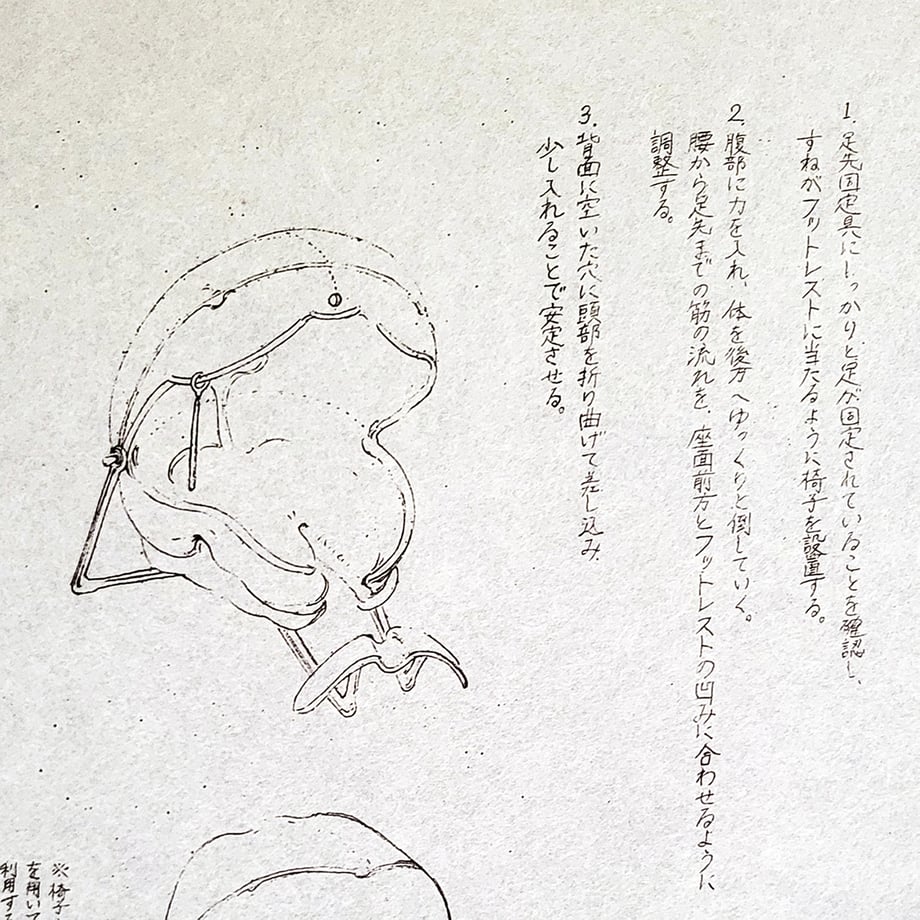 1. 足先固定具にしっかりと足が固定されていることを確認し、
すねがフットレストに当たるように椅子を設置する。
2. 腹部に力を入れ、体を後方へゆっくりと倒していく。
腰から足先までの筋の流れを、座面前方とフットレストの凹みに合わせるように
調整する。
3. 背面に空いた穴に頭部を折り曲げて差し込み
少し入れることで安定させる。
※椅子
を用いて
利用する